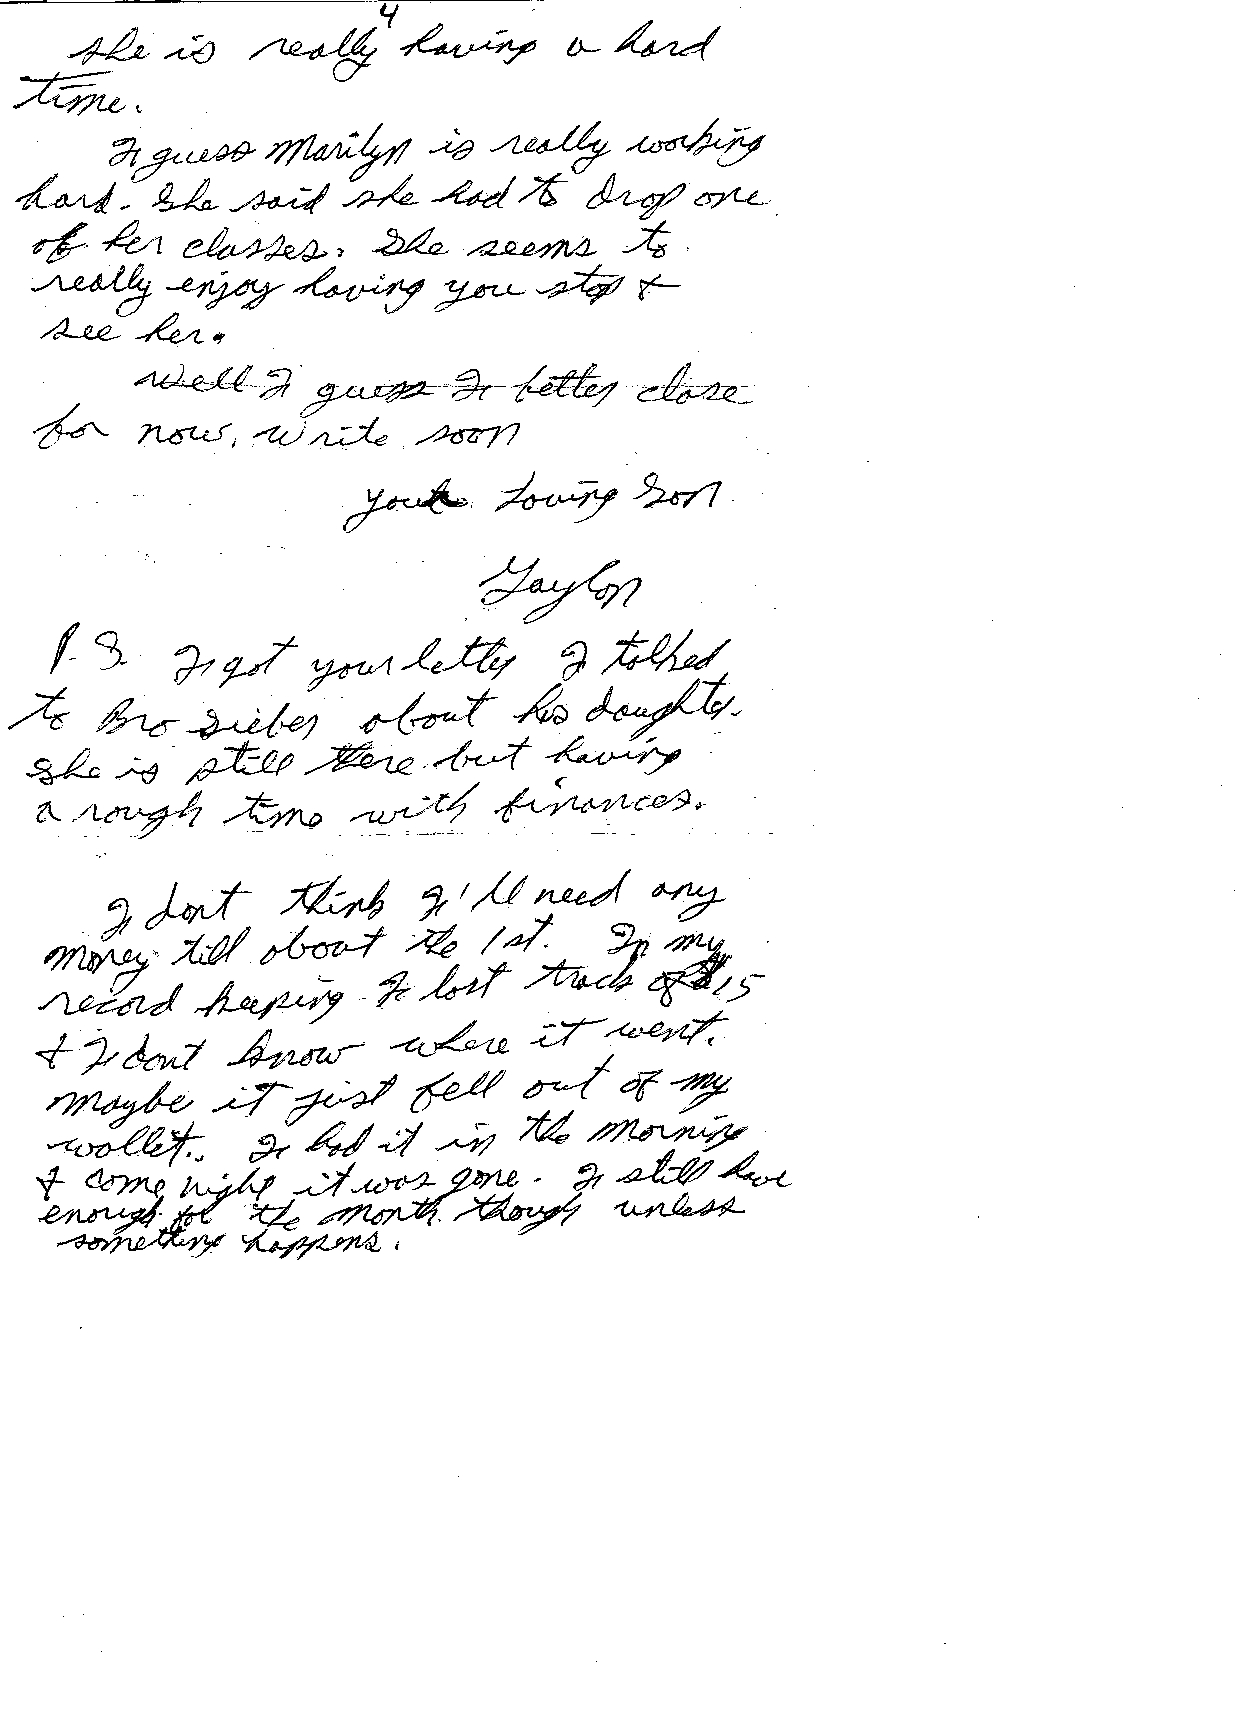 4
she is really having a hard
time.
I guess Marilyn is really working
hard. She said she had to drop one
of her classes. She seems to
really enjoy having you stop &
see her.
Well I guess I better close
for now. Write soon
your Loving Son
Gaylon
P.S. I got your letter I talked
to Bro Sieber about his daughter.
She is still there but having
a rough time with finances.
I dont think I'll need any
money till about the 1st. In my
record keeping I lost track of $15
& I dont know where it went.
maybe it just fell out of my
wallet. I had it in the morning
& come night it was gone. I still have
enough for the month though unless
something happens.